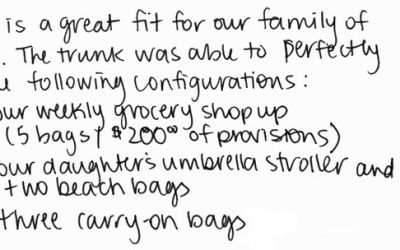 is a great fit for our family of
. The trunk was able to perfectly
following configurations:
our weekly grocery shop up
(5 bags / $200⁰⁰ of provisions)
our daughter's umbrella stroller and
two beach bags
three carry-on bags